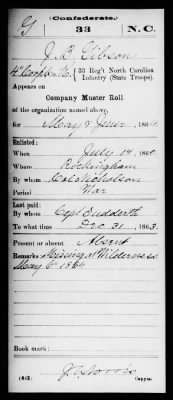 (Confederate.)
G 33 N.C.
J. B. Gibson
33 Reg't North Carolina
Infantry (State Troops).
Appears on
Company Muster Roll
of the organization named above,
for May & June, 1864.
Enlisted:
When July 14, 186
Where Rockingham
By whom Col. Nicholson
Period War
Last paid:
By whom Capt Sudderth
To what time Dec. 31, 1863.
Present or absent Absent
Remarks: Missing at Wilderness
May 6th 1864
Book mark:
(642) Copyist.